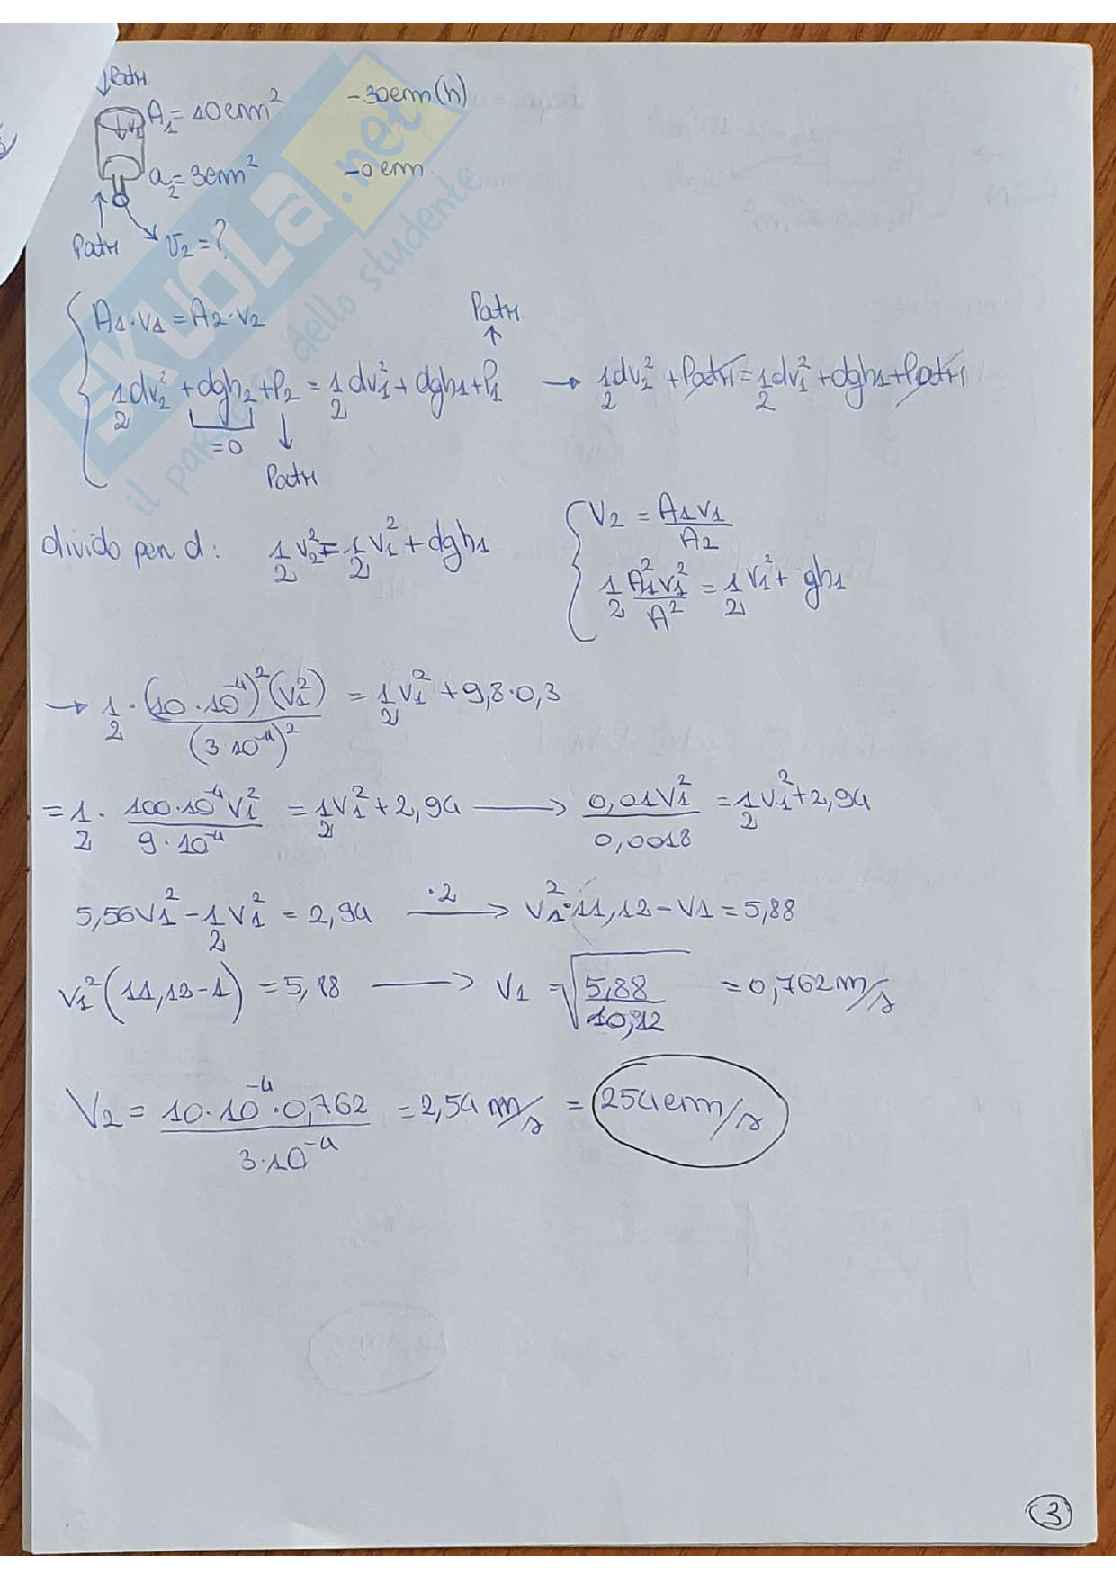 ↓Patm
A₁=10cm² -30cm(h)
↓v₁
a₂=3cm² -0cm
Patm v₂=?
SKUOLA.net
il paradiso dello studente
A₁·v₁=A₂·v₂ Patm
½dv₂²+dgh₂+P₂=½dv₁²+dgh₁+P₁ → ½dv₂²+Patm=½dv₁²+dgh₁+Patm
=0 ↓
Patm
divido per d: ½v₂²=½v₁²+dgh₁
V₂=A₁v₁/A₂
½A₁²v₁²/A²=½v₁²+gh₁
→ ½·(10·10⁻⁴)²(v₁²)/(3·10⁻⁴)²=½v₁²+9,8·0,3
=½·100·10⁻⁴v₁²/9·10⁻⁴=½v₁²+2,94 → 0,01v₁²/0,0018=½v₁²+2,94
5,56v₁²-½v₁²=2,94 ·2→ v₁²·11,12-v₁=5,88
v₁²(11,12-1)=5,88 → v₁=√5,88/10,12=0,762m/s
V₂=10·10⁻⁴·0,762/3·10⁻⁴=2,54m/s=254cm/s
3